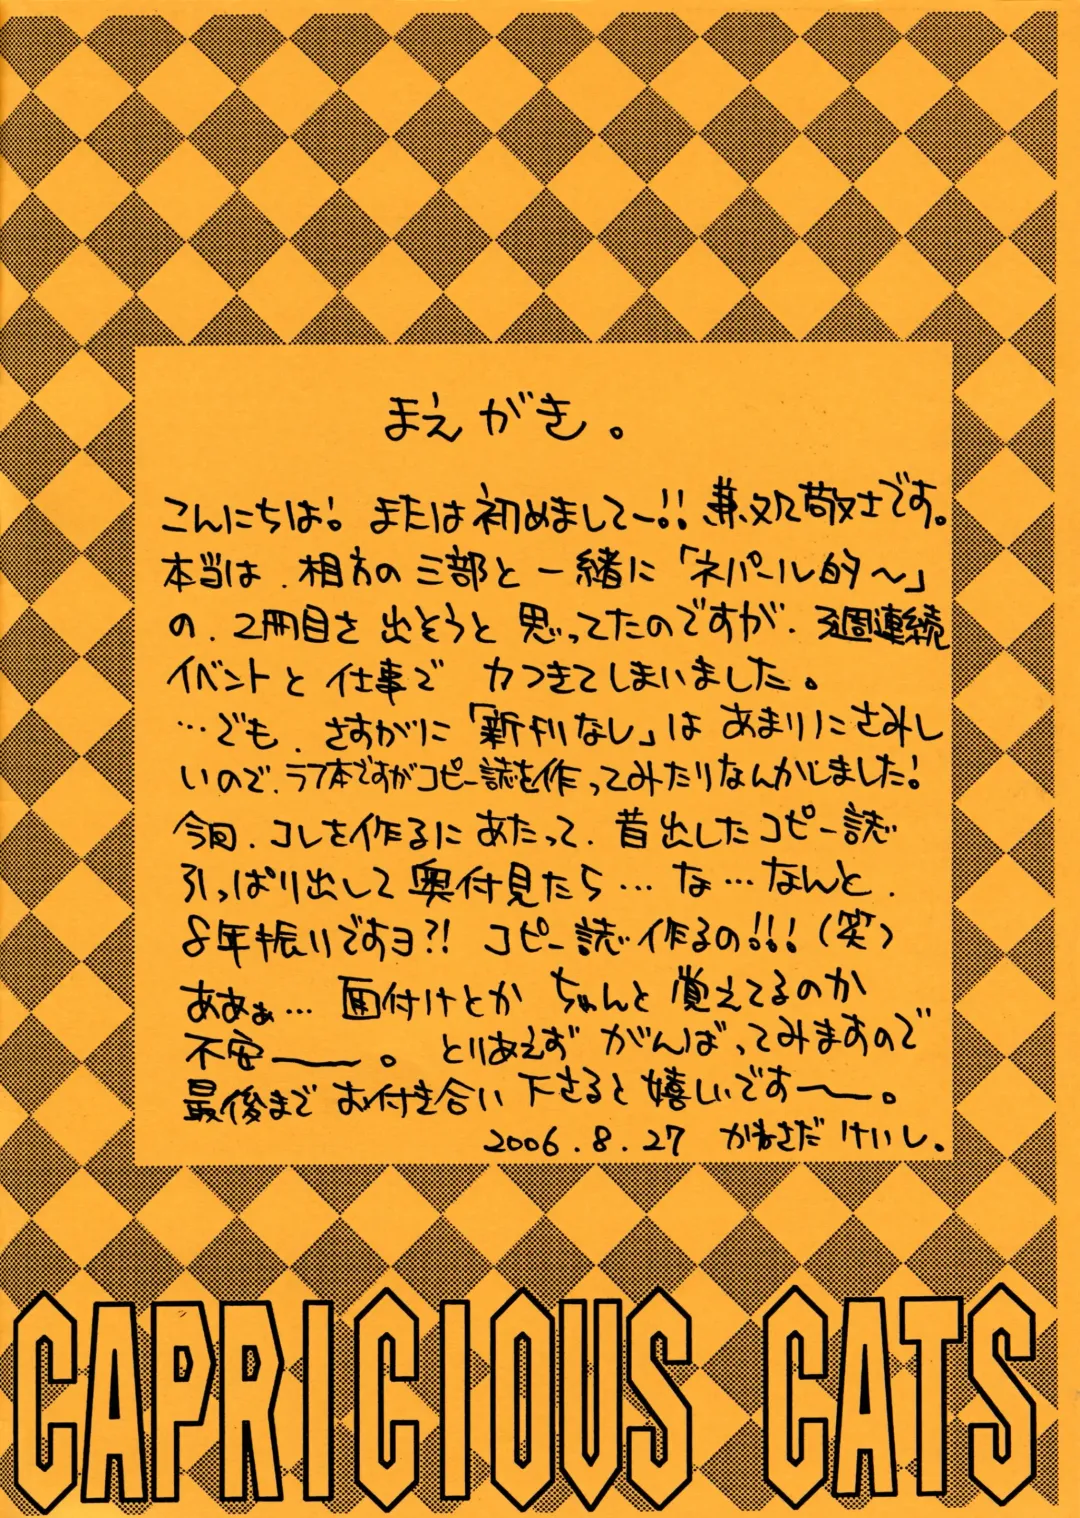 まえがき。
こんにちは!。または初めましてー!! 兼処敬士です。
本当は、相方の三部と一緒に「ネパール的〜」
の、2冊目を出そうと思ってたのですが、3週連続
イベントと仕事で 力つきてしまいました。
…でも、さすがに「新刊なし」はあまりにさみし
いので、ラフ本ですがコピー誌を作ってみたりなんかしました!
今回、コレを作るにあたって、昔出したコピー誌
引っぱり出して奥付見たら…な…なんと、
8年振りですヨ?! コピー誌作るの!!!(笑)
あああぁ… 面付けとか ちゃんと覚えてるのか
不安——。 とりあえず がんばってみますので
最後まで お付き合い下さると嬉しいです〜。
2006.8.27 かねさだ けいし。
CAPRICIOUS CATS